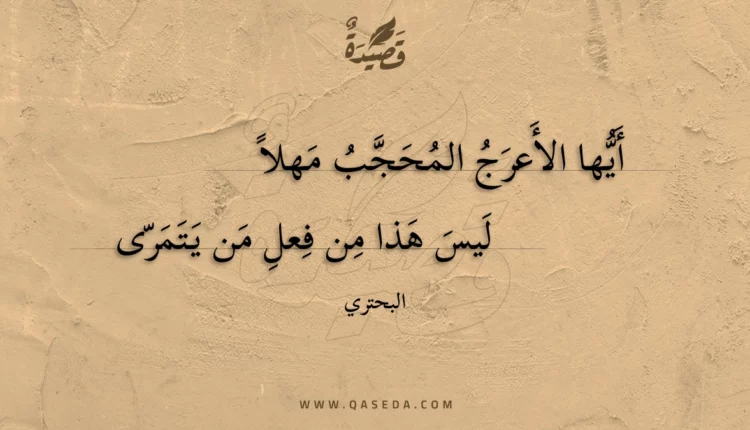 قَصِيدَةٌ
أَيُّها الأَعرَجُ المُحَجَّبُ مَهلاً
لَيسَ هَذا مِن فِعلِ مَن يَتَمَرّى
البحتري
WWW.QASEDA.COM